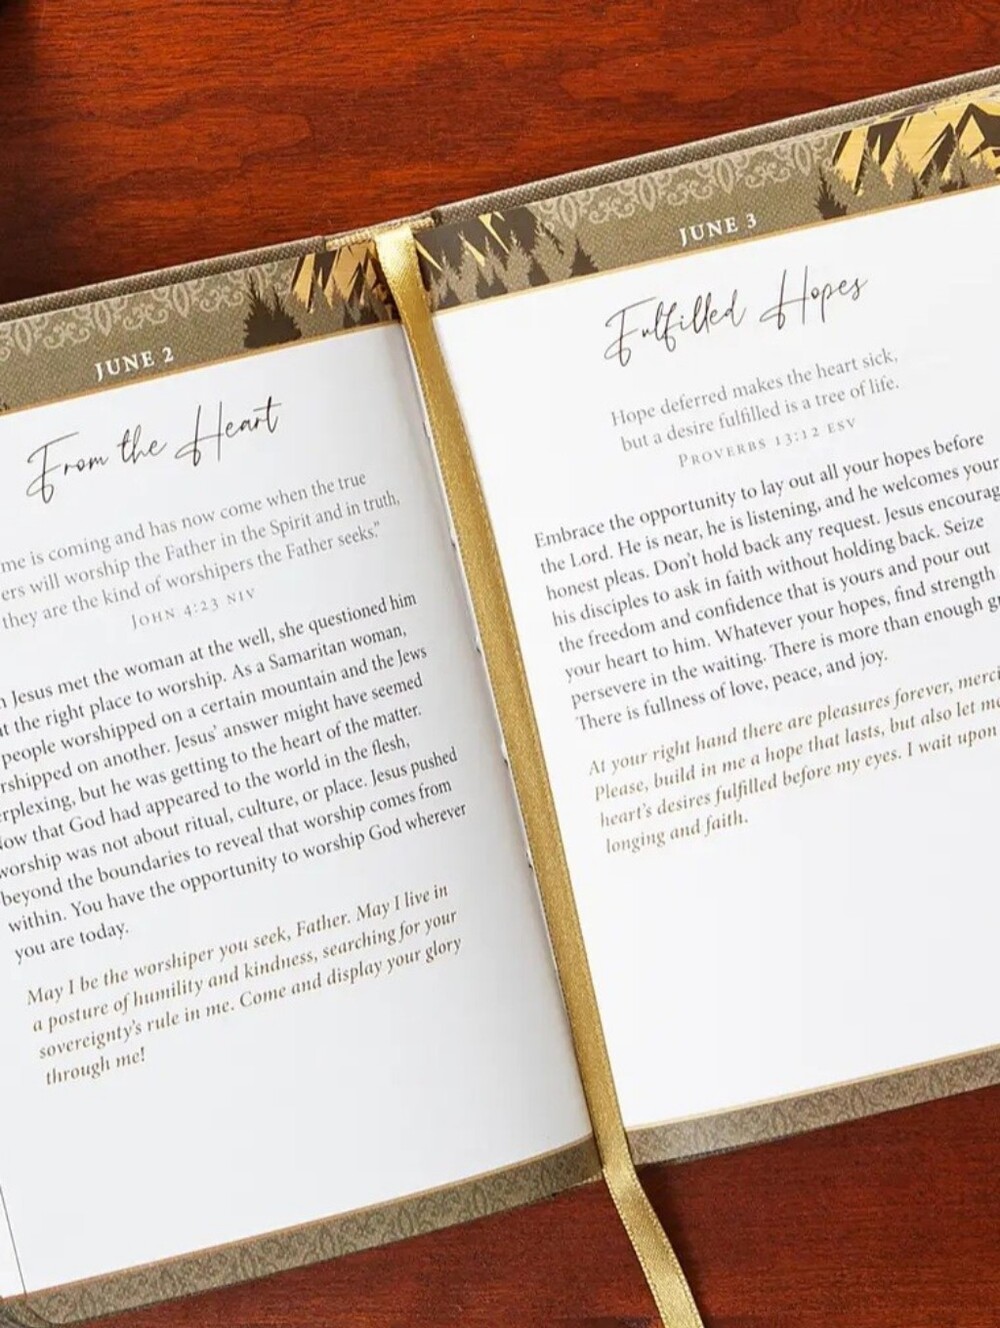 JUNE 2
From the Heart
me is coming and has now come when the true
ers will worship the Father in the Spirit and in truth,
they are the kind of worshipers the Father seeks."
JOHN 4:23 NIV
Jesus met the woman at the well, she questioned him
the right place to worship. As a Samaritan woman,
people worshipped on a certain mountain and the Jews
rshipped on another. Jesus' answer might have seemed
rplexing, but he was getting to the heart of the matter.
ow that God had appeared to the world in the flesh,
worship was not about ritual, culture, or place. Jesus pushed
beyond the boundaries to reveal that worship comes from
within. You have the opportunity to worship God wherever
you are today.
May I be the worshiper you seek, Father. May I live in
a posture of humility and kindness, searching for your
sovereignty's rule in me. Come and display your glory
through me!
JUNE 3
Fulfilled Hopes
Hope deferred makes the heart sick,
but a desire fulfilled is a tree of life.
PROVERBS 13:12 ESV
Embrace the opportunity to lay out all your hopes before
the Lord. He is near, he is listening, and he welcomes your
honest pleas. Don't hold back any request. Jesus encourag
his disciples to ask in faith without holding back. Seize
the freedom and confidence that is yours and pour out
your heart to him. Whatever your hopes, find strength
persevere in the waiting. There is more than enough gr
There is fullness of love, peace, and joy.
At your right hand there are pleasures forever, merci
Please, build in me a hope that lasts, but also let m
heart's desires fulfilled before my eyes. I wait upon
longing and faith.